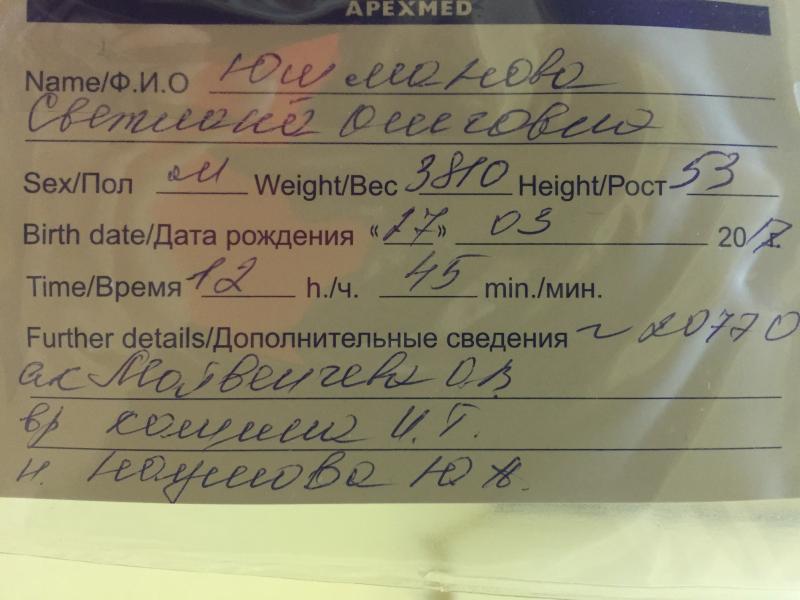 APEXMED
Name/Ф.И.О Юшманова
Светлана Олеговна
Sex/Пол м Weight/Вес 3810 Height/Рост 53
Birth date/Дата рождения «27» 03 2017
Time/Время 12 h./ч. 45 min./мин.
Further details/Дополнительные сведения ~ 20770
ак Матвейчева О.В
вр И.Г.
н. Наумова Ю